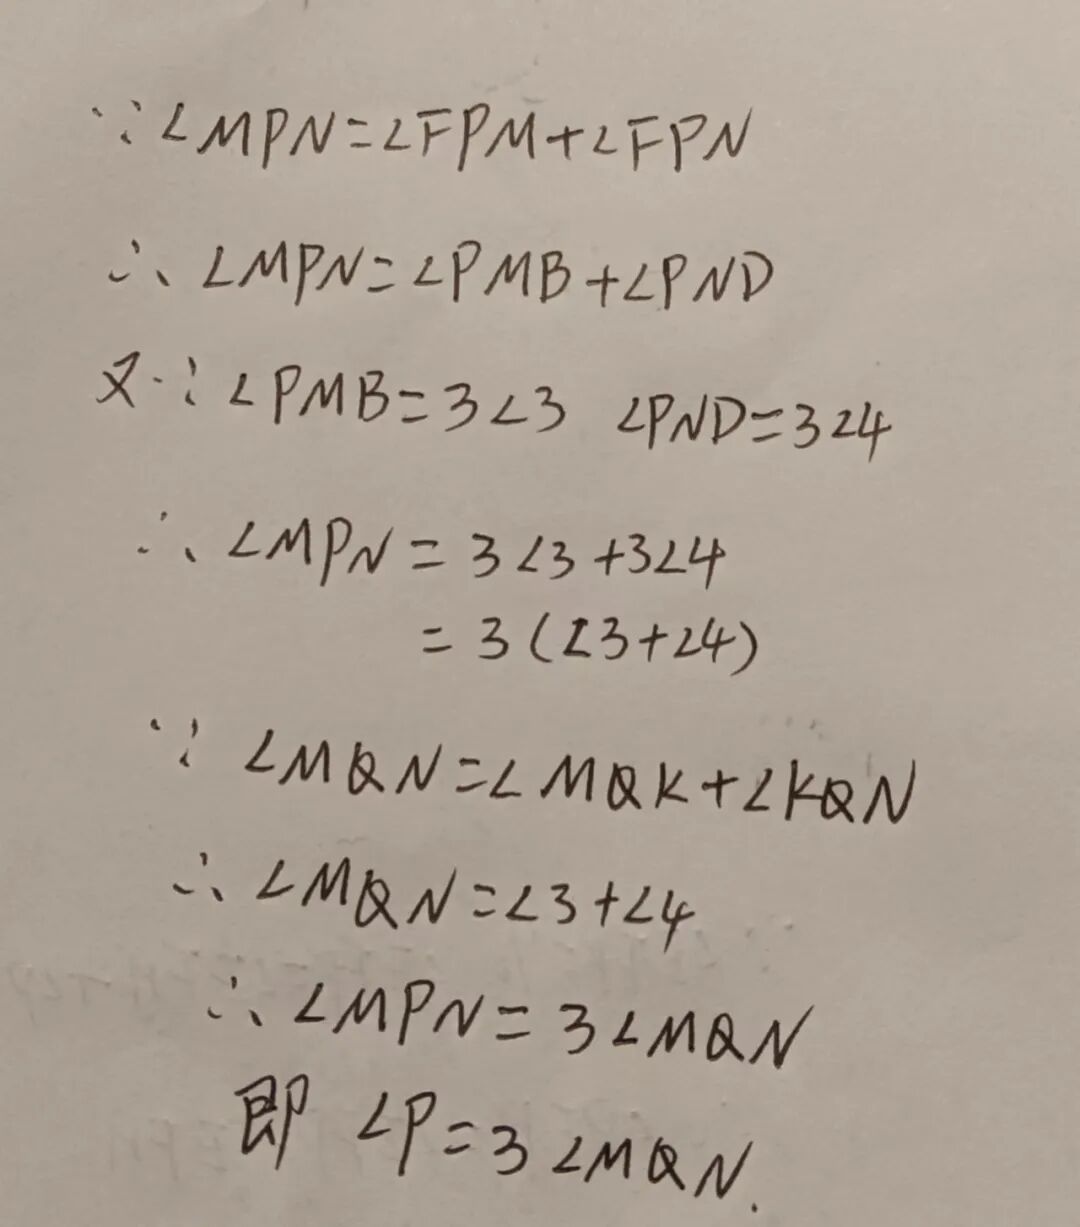 ∵∠MPN=∠FPM+∠FPN
∴∠MPN=∠PMB+∠PND
又∵∠PMB=3∠3 ∠PND=3∠4
∴∠MPN=3∠3+3∠4
=3(∠3+∠4)
∵∠MQN=∠MQK+∠KQN
∴∠MQN=∠3+∠4
∴∠MPN=3∠MQN
即 ∠P=3∠MQN.